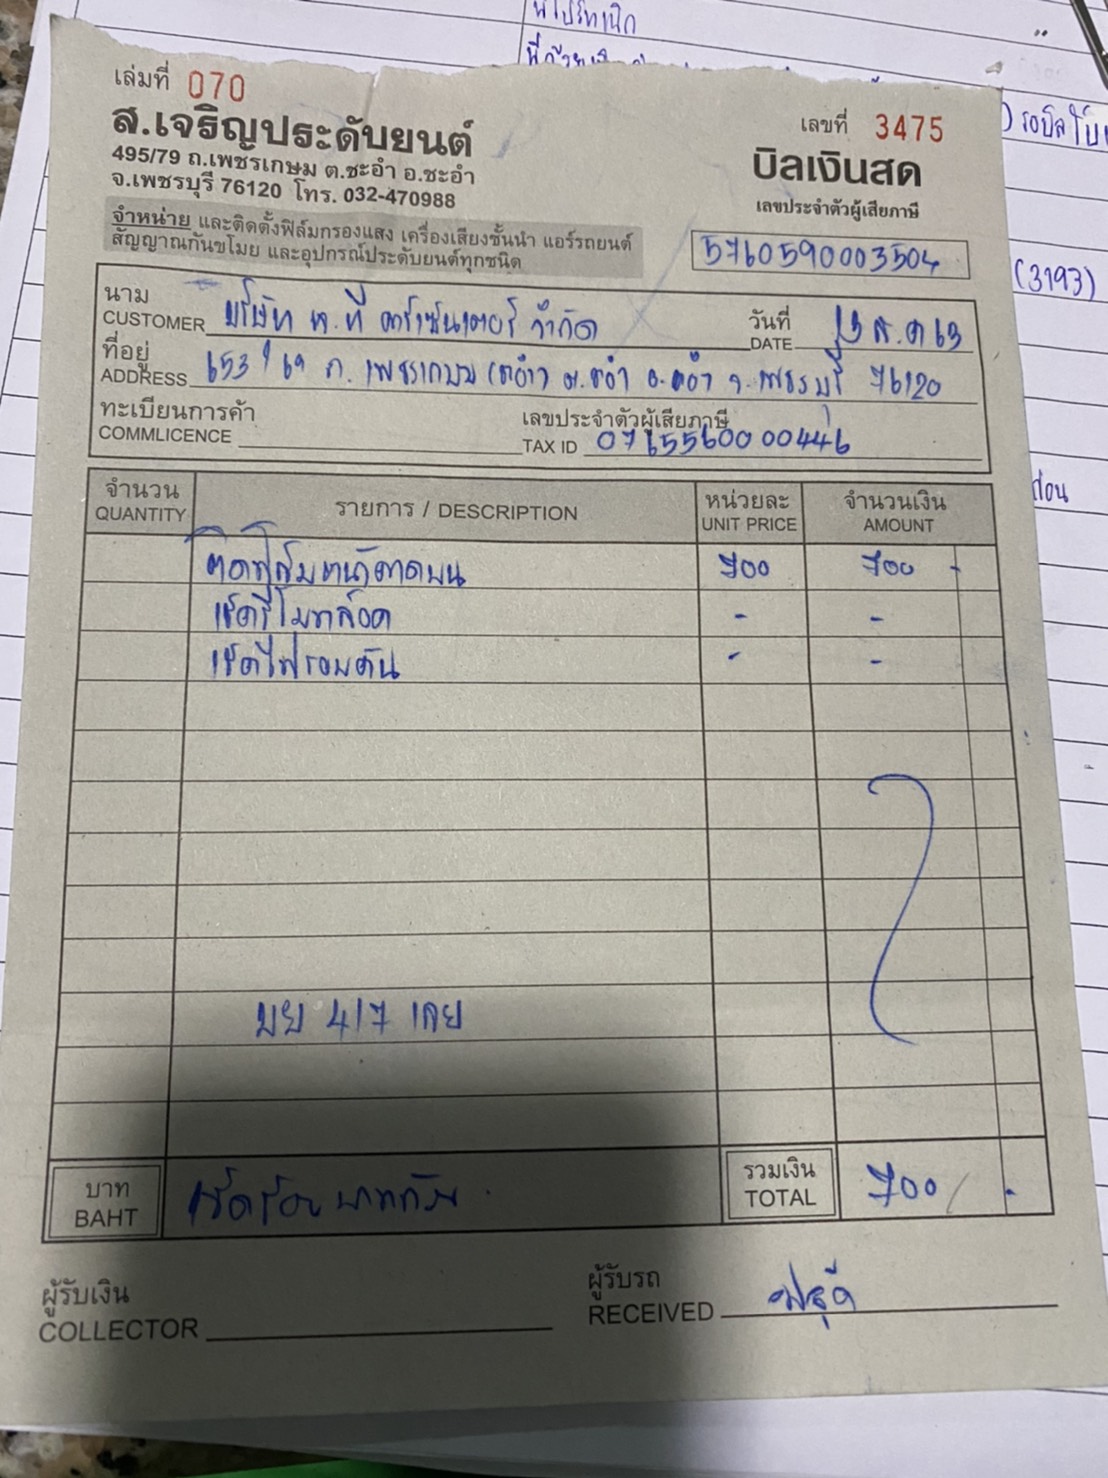 เล่มที่ 070
ส.เจริญประดับยนต์
495/79 ถ.เพชรเกษม ต.ชะอำ อ.ชะอำ
จ.เพชรบุรี 76120 โทร. 032-470988
จำหน่าย และติดตั้งฟิล์มกรองแสง เครื่องเสียงชั้นนำ แอร์รถยนต์
สัญญาณกันขโมย และอุปกรณ์ประดับยนต์ทุกชนิด
เลขที่ 3475
บิลเงินสด
เลขประจำตัวผู้เสียภาษี
5760590003504
(3193)
นาม
CUSTOMER บริษัท พ.ที คาร์เซ็นเตอร์ จำกัด
วันที่
DATE 13 ส.ค 63
ที่อยู่
ADDRESS 653/69 ถ.เพชรเกษม ต.ชะอำ อ.ชะอำ จ.เพชรบุรี 76120
ทะเบียนการค้า
COMMLICENCE
เลขประจำตัวผู้เสียภาษี
TAX ID 0765560000446
จำนวน รายการ / DESCRIPTION หน่วยละ จำนวนเงิน
QUANTITY UNIT PRICE AMOUNT
ติดฟิล์มหน้าคาดบน 700 700 -
เช็ครีโมทล็อค - -
เช็คไฟรอบคัน - -
บย 417 เลย
บาท
BAHT
เจ็ดร้อยบาทถ้วน
รวมเงิน
TOTAL 700 / -
ผู้รับเงิน
COLLECTOR
ผู้รับรถ
RECEIVED